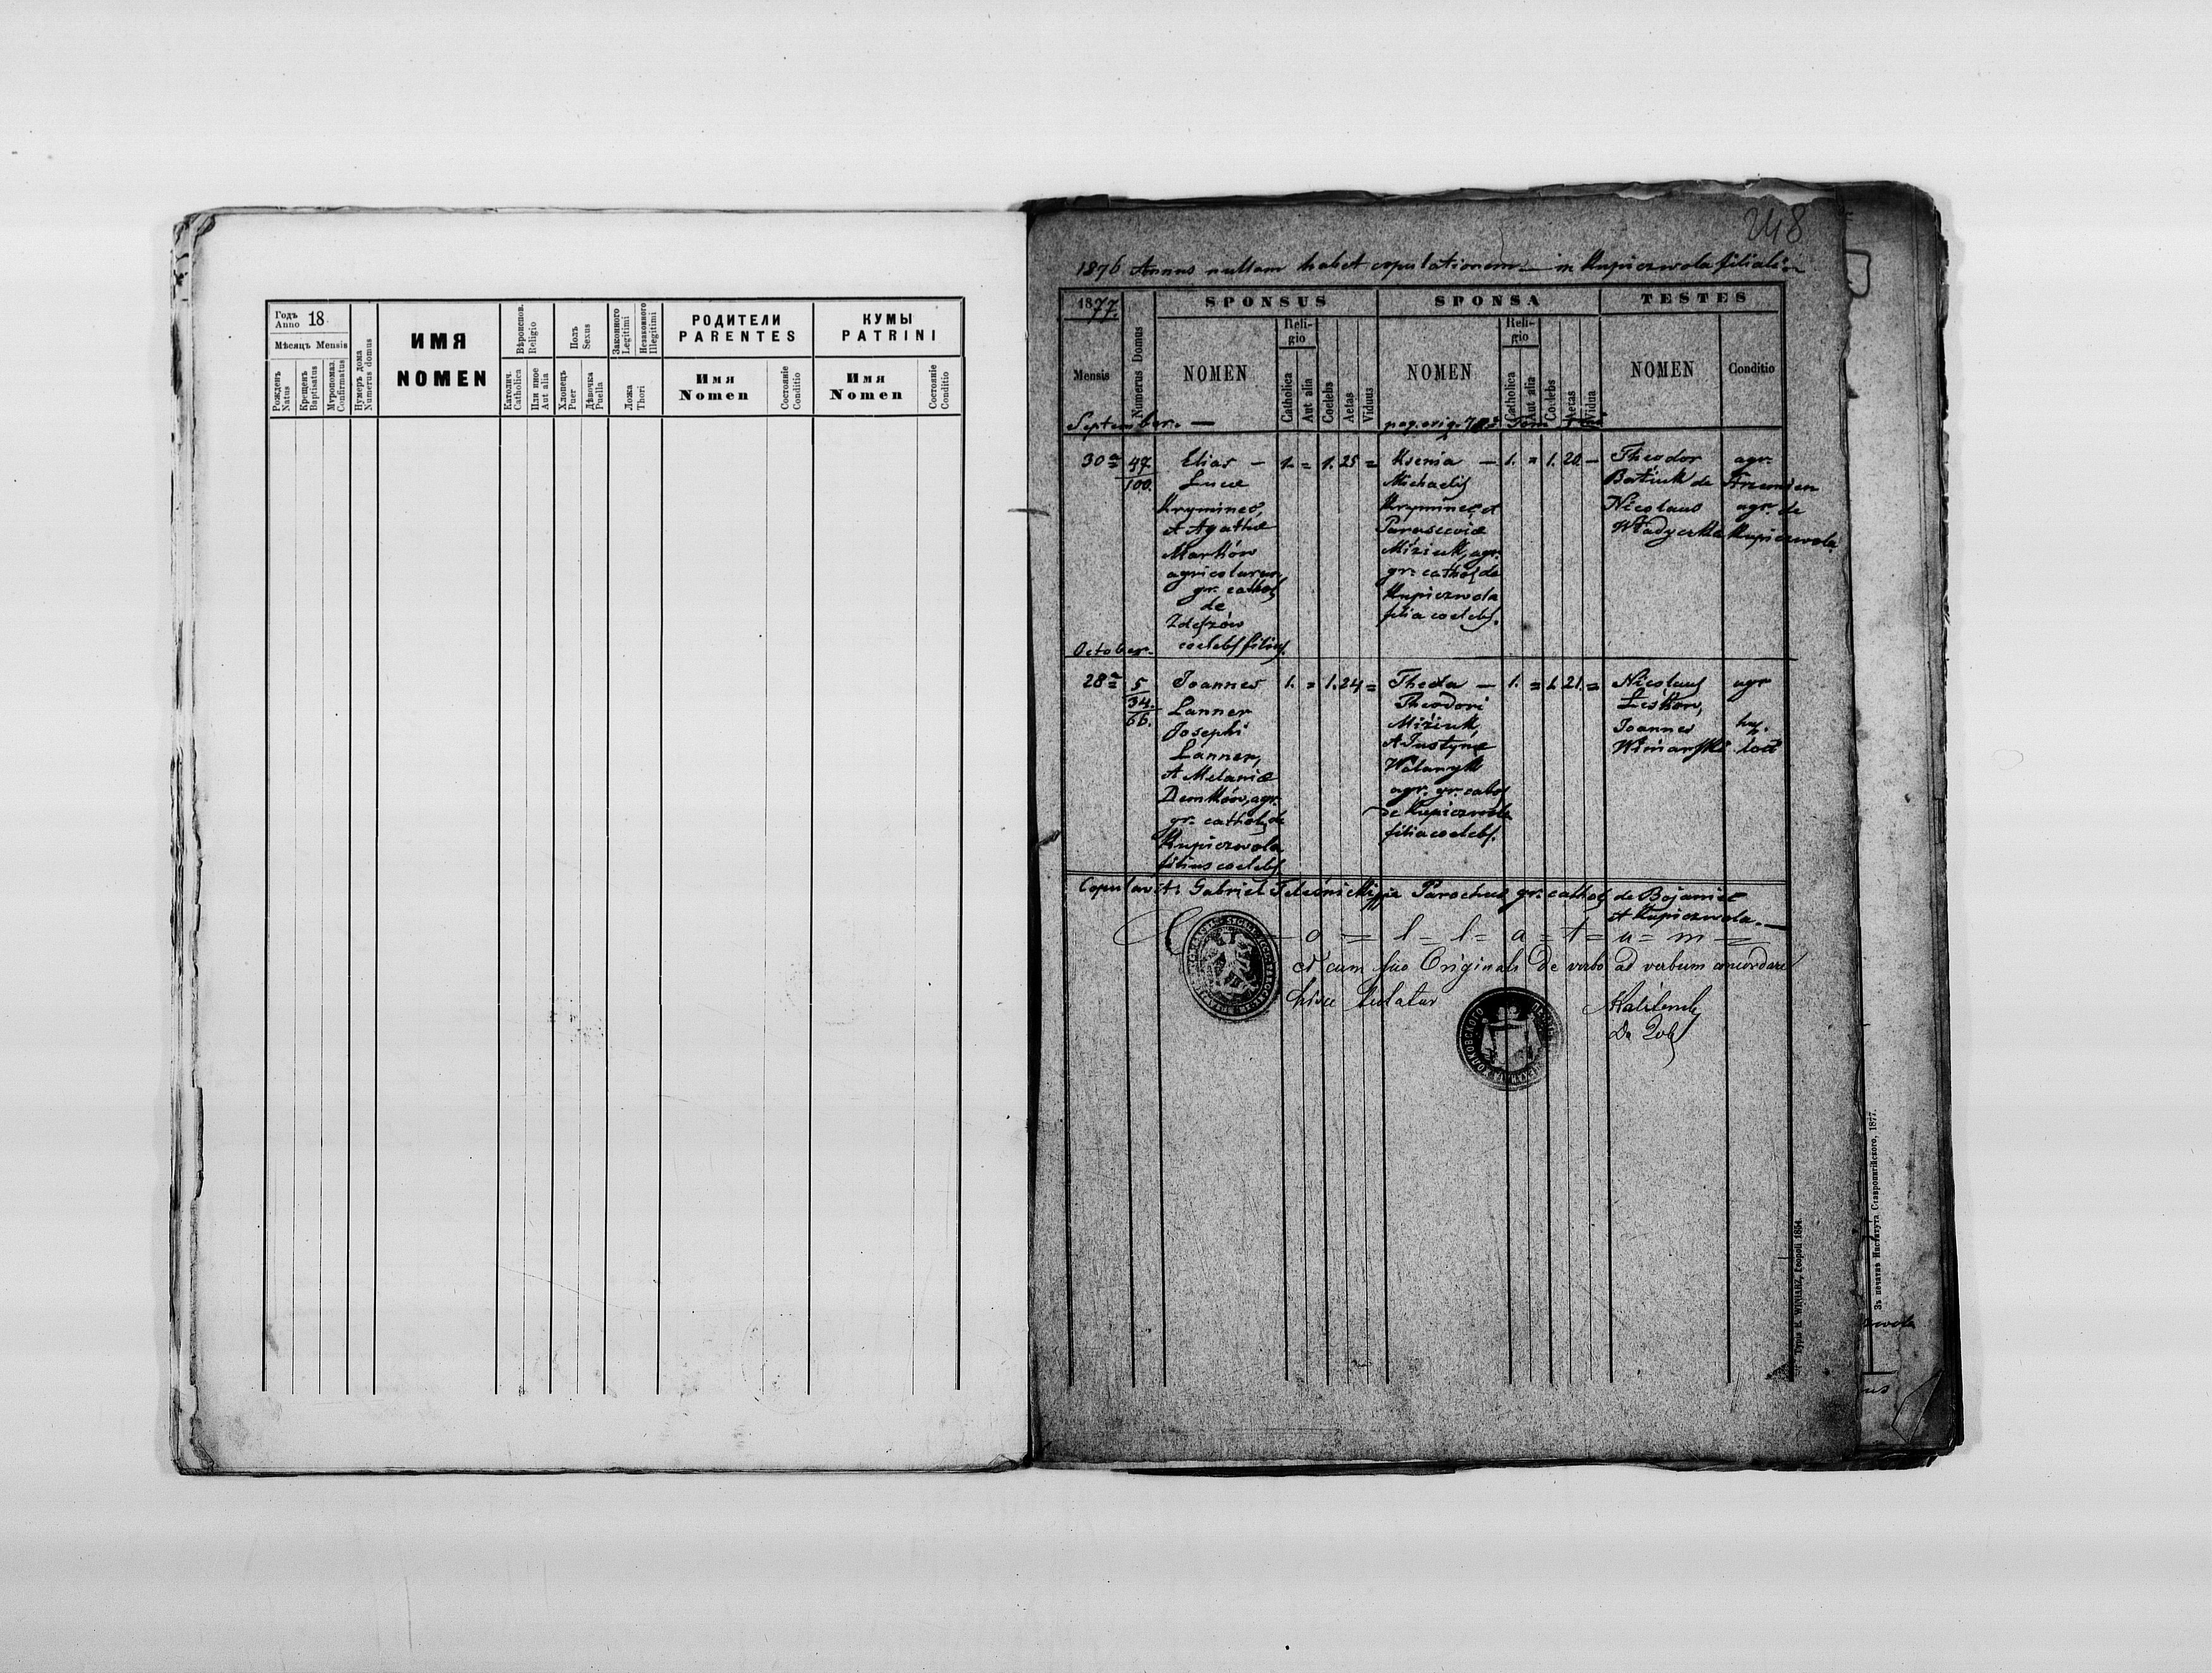 Годъ
Anno 18
Мѣсяцъ Mensis
Рожденъ
Natus
Крещенъ
Baptisatus
Мѵропомаз.
Confirmatus
Нумеръ дома
Numerus domus
ИМЯ
NOMEN
Вѣроиспов.
Religio
Католич.
Catholica
Или иное
Aut alia
Полъ
Sexus
Хлопецъ
Puer
Дѣвочка
Puella
Законного
Legitimi
Незаконного
Illegitimi
Ложа
Thori
РОДИТЕЛИ
PARENTES
Имя
Nomen
Состояніе
Conditio
КУМЫ
PATRINI
Имя
Nomen
Состояніе
Conditio
248
1876 Annus nullam habet copulationem — in Kupiczwola filiali
1877.
Mensis
Numerus Domus
SPONSUS
NOMEN
Reli-
gio
Catholica
Aut alia
Coelebs
Aetas
Viduus
SPONSA
NOMEN
Reli-
gio
Catholica
Aut alia
Coelebs
Aetas
Vidua
TESTES
NOMEN
Conditio
September. —
pag. orig. Tom
30
47
100.
Elias —
Lucæ
Kryminec,
et Agathæ
Marków
agricolarum
gr. cathol
de
Zdeszów
coelebs filius.
1. = 1. 25 =
Ksenia —
Michaelis
Kryminec et
Parasceviæ
Miziuk, agr.
gr. cathol. de
Kupiczwola
filia coelebs.
1. = 1. 20 —
Theodor
Batiuk de
Nicolaus
Władyczka
agr.
agr. de
Kupiczwola
October.
28
5
34.
66.
Joannes
Lanner
Josephi
Lanner,
et Melaniæ
Demków, agr.
gr. cathol. de
Kupiczwola
filius coelebs
1. = 1. 24 =
Thecla —
Theodori
Miziuk,
et Justynæ
agr. gr. cathol
de Kupiczwola
filia coelebs.
1. = 1. 21. =
Nicolaus
Leskow,
Joannes
Winiarski
agr
huj.
loci
Copulavit: Gabriel Parochus gr. cathol. de Bojaniec
et Kupiczwola. —
C = o = l = l = a = t = u = m =
et cum suo Originali de verbo ad verbum concordare
hisce
Typis E. WINIARZ, Leopoli 1854.
Зъ печатнѣ Института Ставропигійского, 1877.